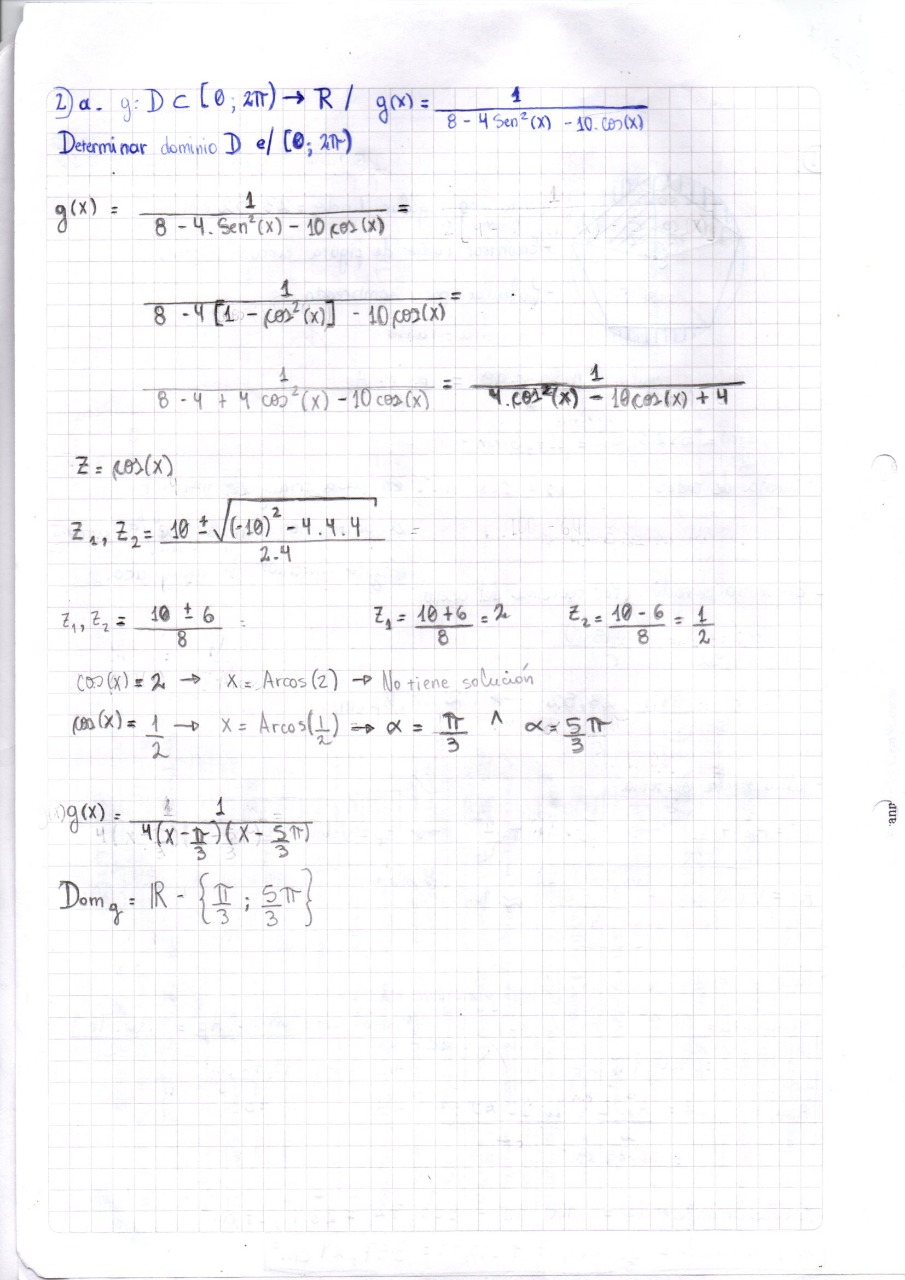 2) a. g: D ⊂ [0; 2π) → R / g(x) = 1 / (8 - 4 Sen²(x) - 10. cos(x))
Determinar dominio D e/ [0; 2π)
g(x) = 1 / (8 - 4. Sen²(x) - 10 cos(x)) =
1 / (8 - 4 [1 - cos²(x)] - 10 cos(x)) =
1 / (8 - 4 + 4 cos²(x) - 10 cos(x)) = 1 / (4. cos²(x) - 10 cos(x) + 4)
Z = cos(x)
Z₁, Z₂ = (10 ± √((-10)² - 4. 4. 4)) / (2.4)
Z₁, Z₂ = (10 ± 6) / 8 Z₁ = (10 + 6) / 8 = 2 Z₂ = (10 - 6) / 8 = 1/2
cos(x) = 2 → x = Arcos(2) → No tiene solución
cos(x) = 1/2 → x = Arcos(1/2) → α = π/3 ∧ α = 5/3 π
g(x) = 1 / (4(x - π/3)(x - 5/3 π))
Dom g = R - {π/3 ; 5/3 π}